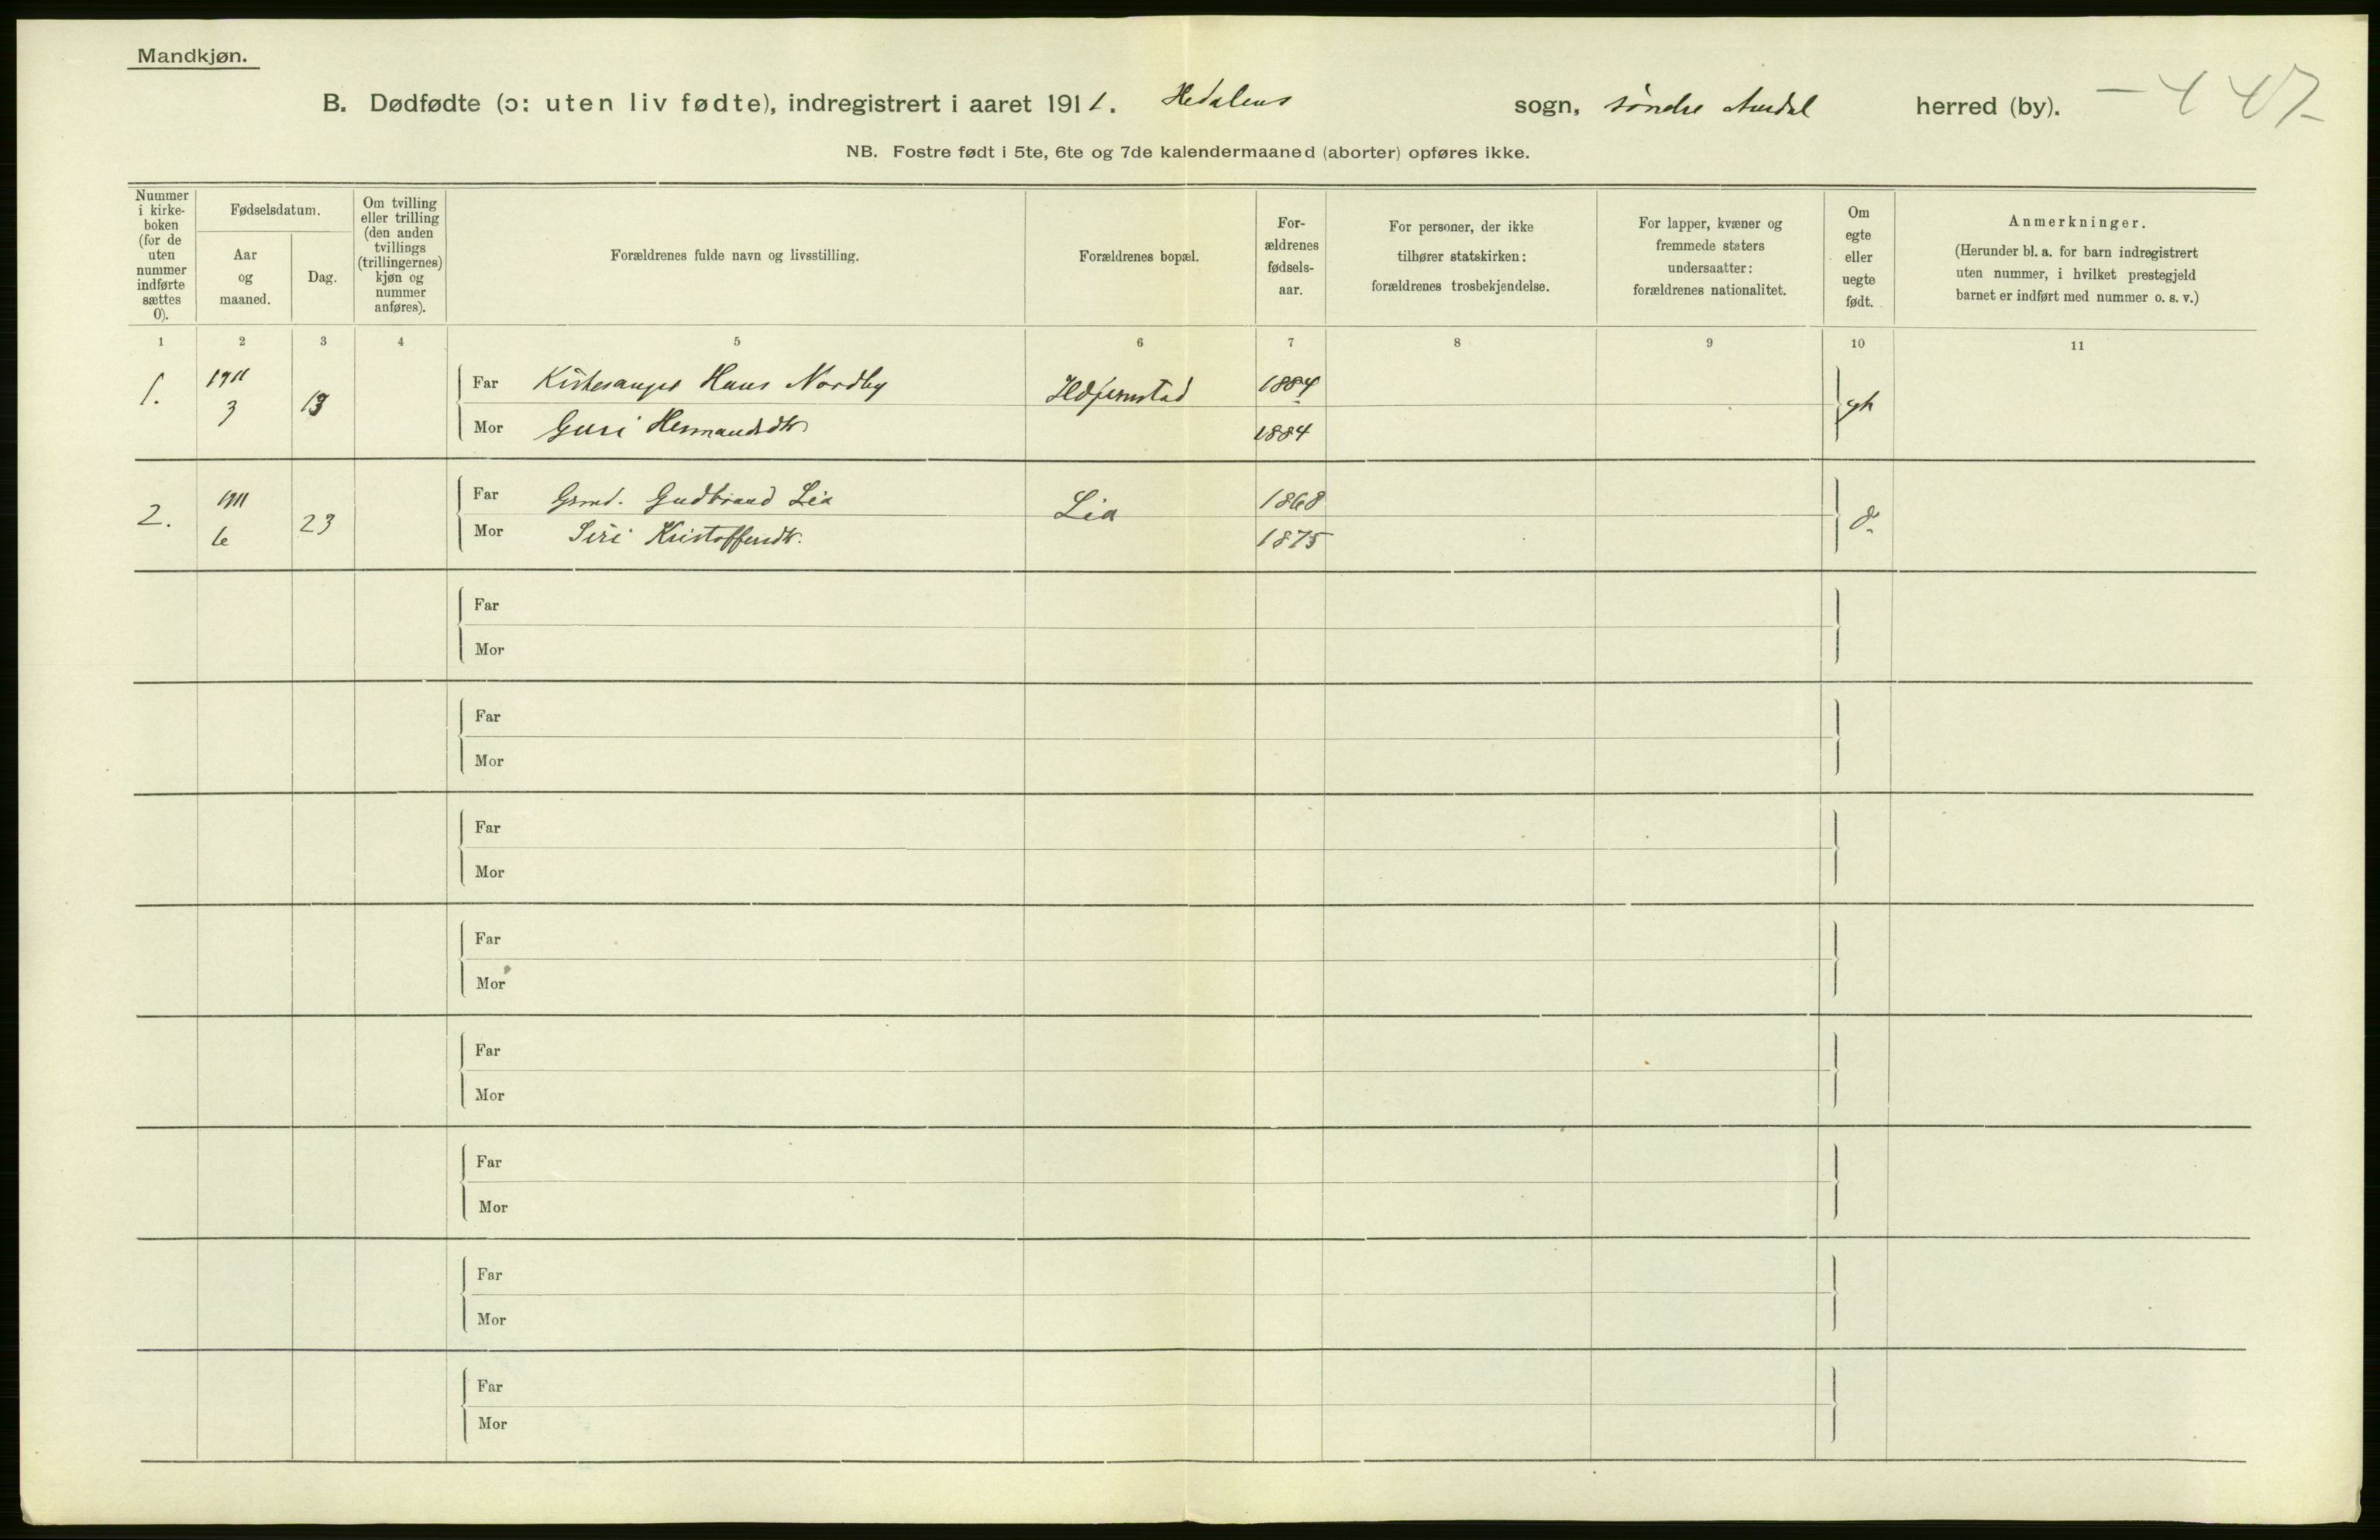 Mandkjøn.
B. Dødfødte (ɔ: uten liv fødte), indregistrert i aaret 1911. Hedalens sogn, søndre Aurdal herred (by).
NB. Fostre født i 5te, 6te og 7de kalendermaaned (aborter) opføres ikke.
Nummer
i kirke-
boken
(for de
uten
nummer
indførte
sættes
0).
Fødselsdatum.
Aar
og
maaned.
Dag.
Om tvilling
eller trilling
(den anden
tvillings
(trillingernes)
kjøn og
nummer
anføres).
Forældrenes fulde navn og livsstilling.
Forældrenes bopæl.
For-
ældrenes
fødsels-
aar.
For personer, der ikke
tilhører statskirken:
forældrenes trosbekjendelse.
For lapper, kvæner og
fremmede staters
undersaatter:
forældrenes nationalitet.
Om
egte
eller
uegte
født.
Anmerkninger.
(Herunder bl. a. for barn indregistrert
uten nummer, i hvilket prestegjeld
barnet er indført med nummer o. s. v.)
1 2 3 4 5 6 7 8 9 10 11
1. 1911 3 13 Far Kirkesanger Hans Nordby 1884 egte
Mor Guri Hermandsdtr 1884
2. 1911 6 23 Far Gsmd. Gudbrand Lia Lia 1868 do
Mor Siri Kristoffersdtr. 1875
Far
Mor
Far
Mor
Far
Mor
Far
Mor
Far
Mor
Far
Mor
Far
Mor
Far
Mor